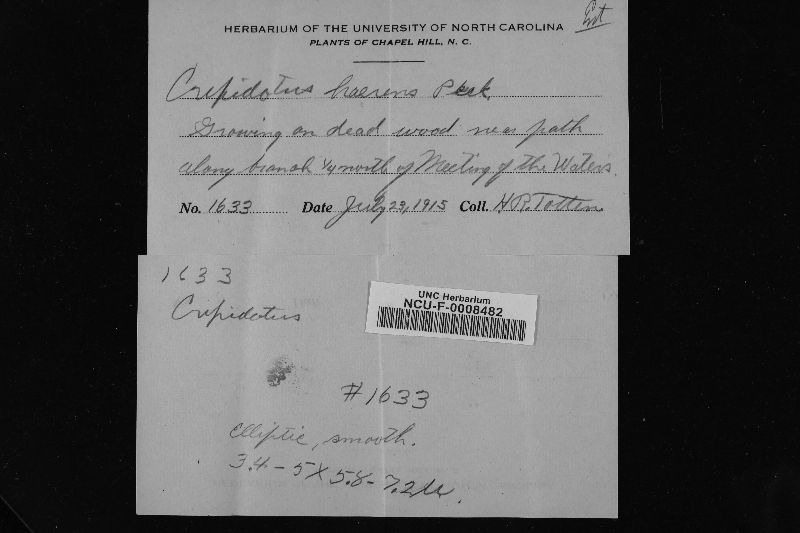 Ext
HERBARIUM OF THE UNIVERSITY OF NORTH CAROLINA
PLANTS OF CHAPEL HILL, N. C.
Crepidotus haerens Peck
Growing on dead wood near path
along branch 1/4 north of Meeting of the Waters.
No. 1633 Date July 23, 1915 Coll. H.R. Totten
1633
Crepidotus
UNC Herbarium
NCU-F-0008482
#1633
elliptic, smooth.
3.4 - 5 X 5.8 - 7.2 µ.